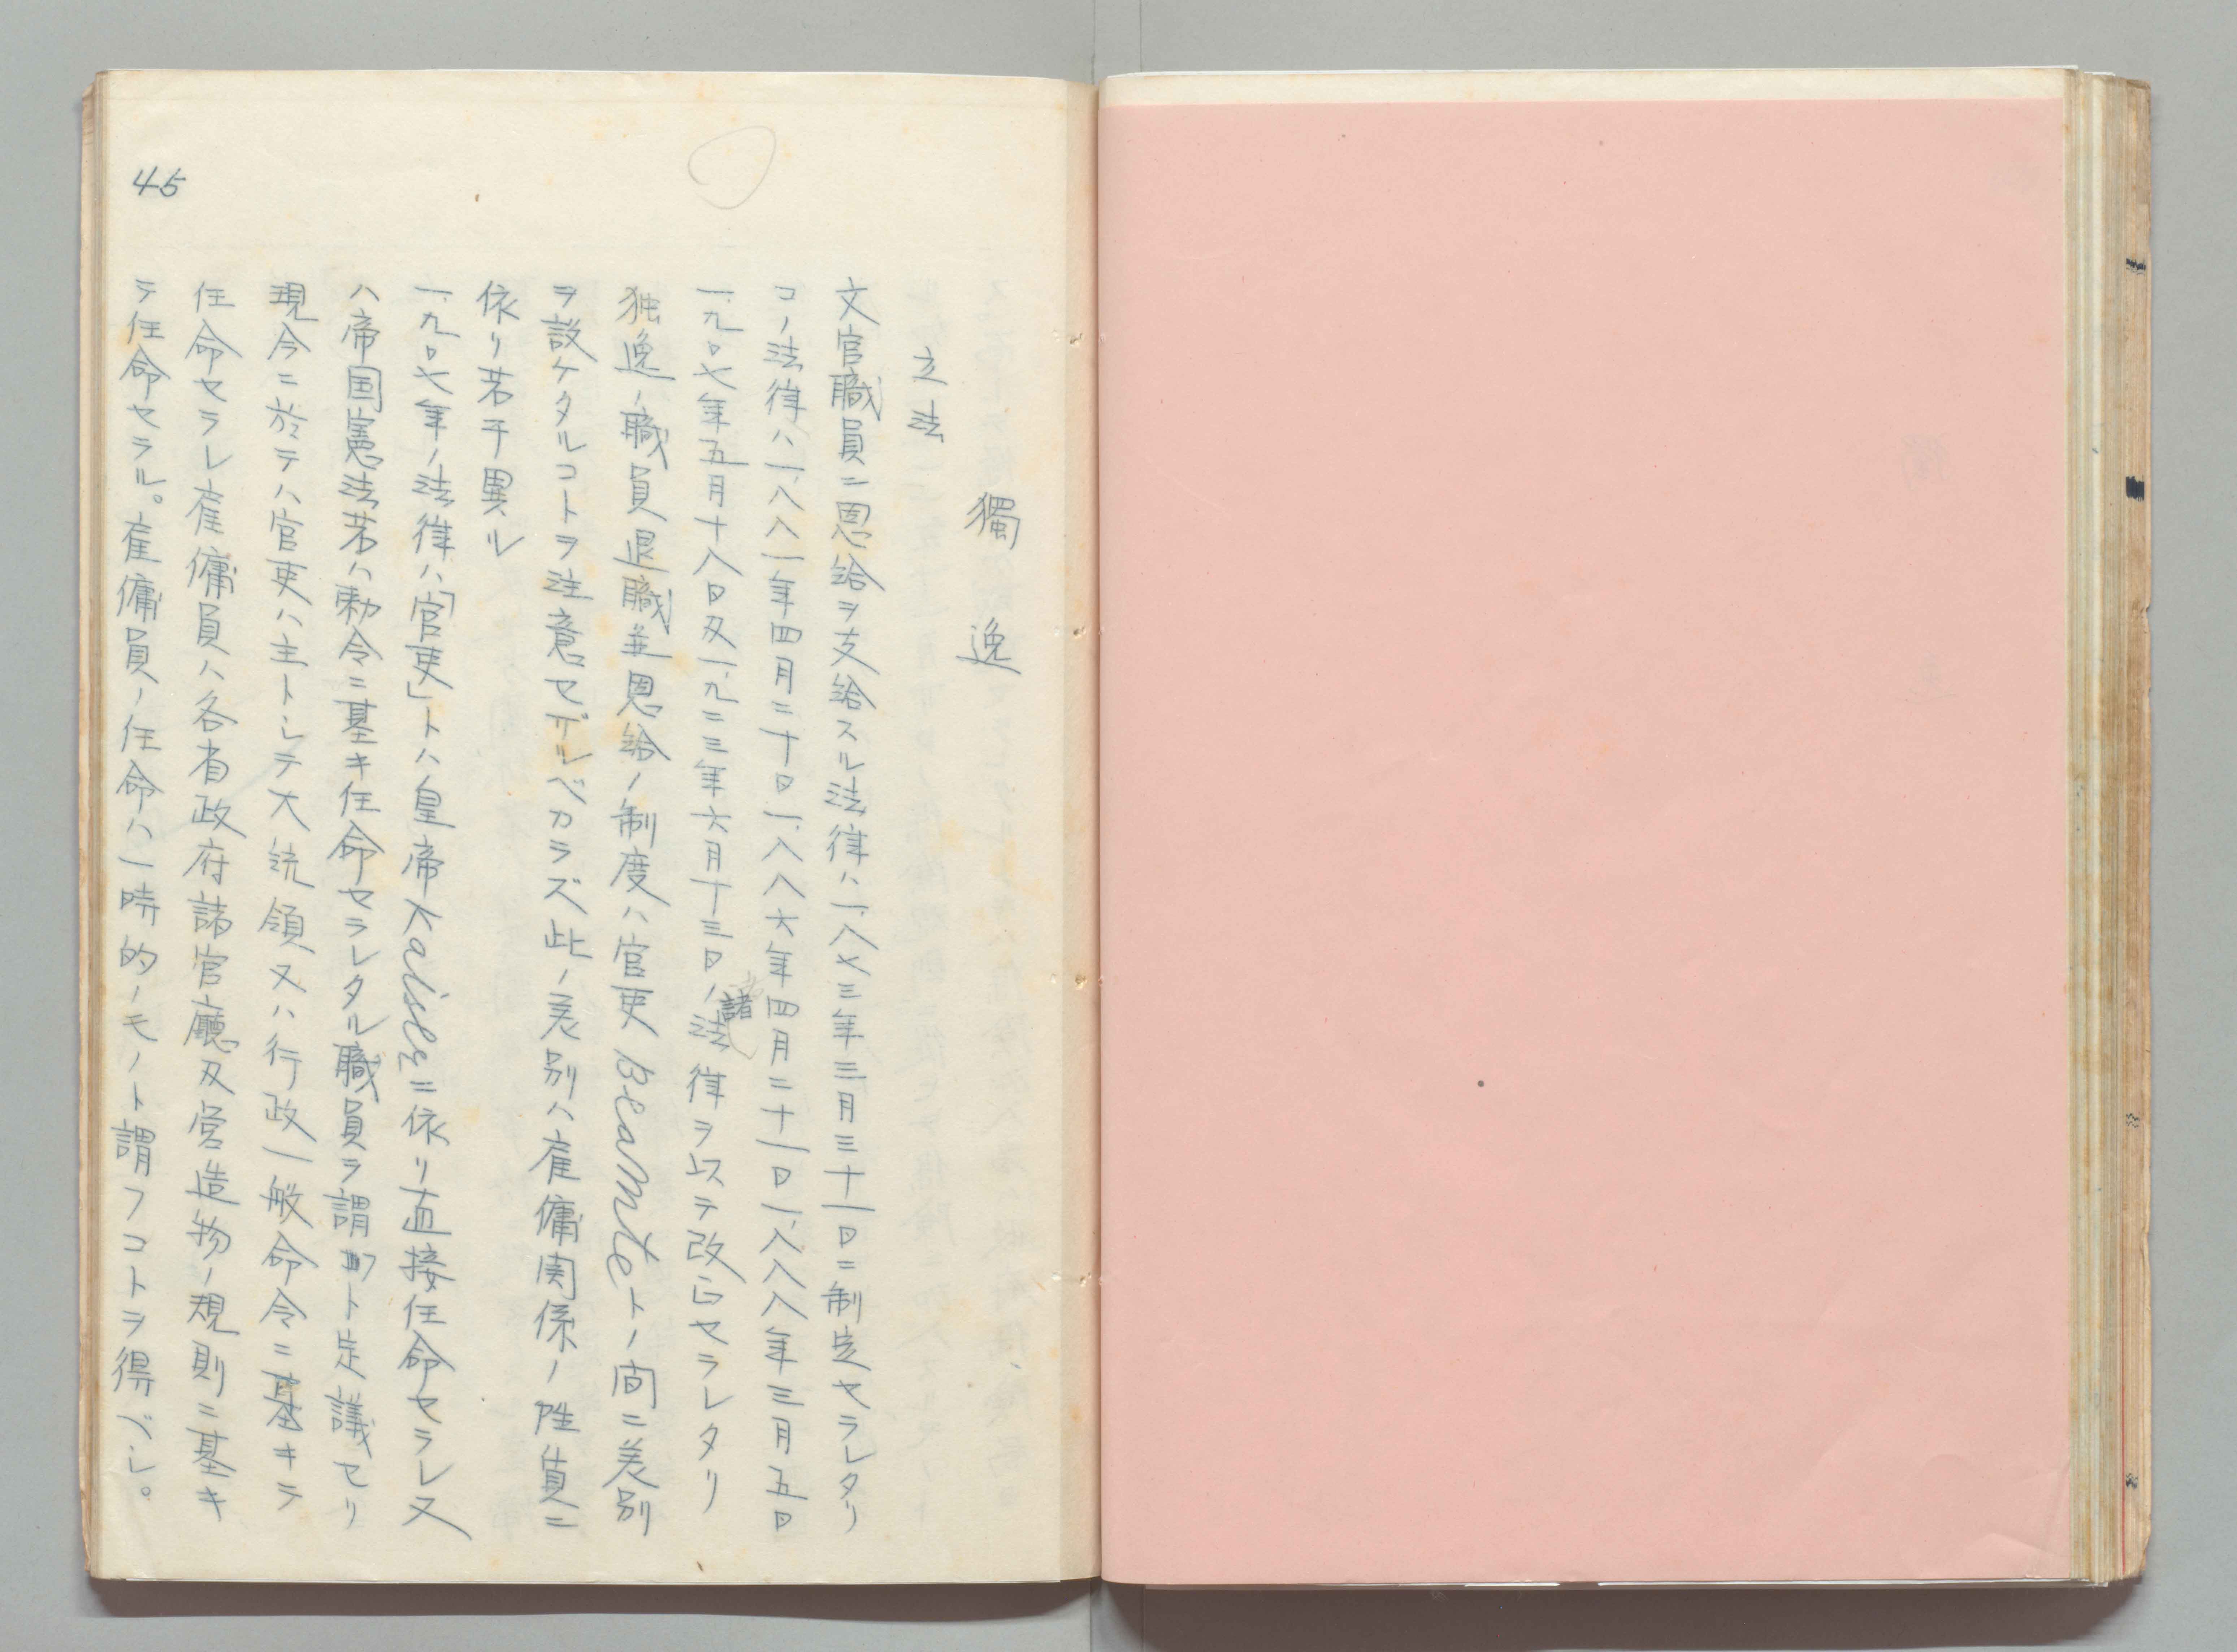 獨逸
立法
文官職員ニ恩給ヲ支給スル法律ハ一、八七三年三月三十一日ニ制定セラレタリ
コノ法律ハ一、八八一年四月二十日一、八八六年四月二十一日一、八八八年三月五日
一、九〇七年五月十八日及一、九二三年六月十三日ノ諸法律ヲ以ステ改正セラレタリ
独逸ノ職員退職並恩給ノ制度ハ官吏Beamteトノ間ニ差別
ヲ設ケタルコトヲ注意セザルベカラズ此ノ差別ハ雇傭関係ノ性質ニ
依リ若干異ル
一、九〇七年ノ法律ハ「官吏」トハ皇帝Kaiserニ依リ直接任命セラレ又
ハ帝国憲法若ハ勅令ニ基キ任命セラレタル職員ヲ謂フト定議セリ
現今ニ於テハ官吏ハ主トシテ大統領又ハ行政一般命令ニ基キテ
任命セラレ雇傭員ハ各省政府諸官廳及営造物ノ規則ニ基キ
テ任命セラル。雇傭員ノ任命ハ一時的ノモノト謂フコトヲ得ベシ。
45